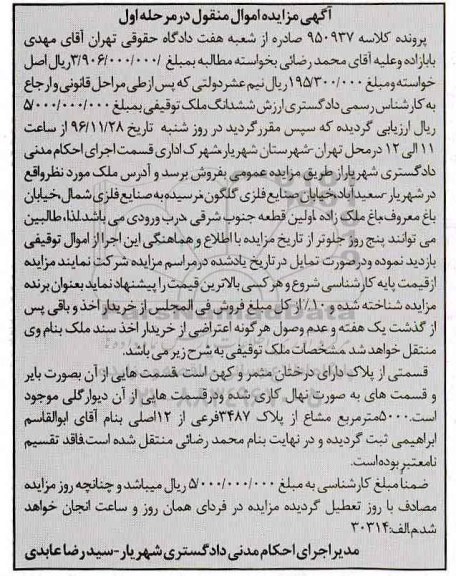 آگهی مزایده اموال منقول در مرحله اول
پرونده کلاسه ۹۵۰۹۳۷ صادره از شعبه هفت دادگاه حقوقی تهران آقای مهدی
بابازاده وعلیه آقای محمد رضائی بخواسته مطالبه بمبلغ ۳/۹۰۶/۰۰۰/۰۰۰/ریال اصل
خواسته ومبلغ ۱۹۵/۳۰۰/۰۰۰ ریال نیم عشر دولتی که پس از طی مراحل قانونی و ارجاع
به کارشناس رسمی دادگستری ارزش ششدانگ ملک توقیفی بمبلغ ۵/۰۰۰/۰۰۰/۰۰۰
ریال ارزیابی گردیده که سپس مقرر گردید در روز شنبه تاریخ ۹۶/۱۱/۲۸ از ساعت
۱۱ الی ۱۲ در محل تهران -شهرستان شهریار،شهرک اداری قسمت اجرای احکام مدنی
دادگستری شهریار از طریق مزایده عمومی بفروش برسد و آدرس ملک مورد نظر واقع
در شهریار -سعیدآباد،خیابان صنایع فلزی گلگون،نرسیده به صنایع فلزی شمال،خیابان
باغ معروف،باغ ملک زاده ،اولین قطعه جنوب شرقی ،درب ورودی می باشد.لذا،طالبین
می توانند پنج روز جلوتر از تاریخ مزایده با اطلاع و هماهنگی این اجرا از اموال توقیفی
بازدید نموده ودرصورت تمایل در تاریخ یادشده درمراسم مزایده شرکت نمایند مزایده
ازقیمت پایه کارشناسی شروع و هر کسی بالاترین قیمت را پیشنهاد نماید بعنوان برنده
مزایده شناخته شده و ۱۰٪ از کل مبلغ فروش فی المجلس از خریدار اخذ و باقی پس
از گذشت یک هفته و عدم وصول هرگونه اعتراضی از خریدار اخذ سند ملک بنام وی
منتقل خواهد شد.مشخصات ملک توقیفی به شرح زیر می باشد.
قسمتی از پلاک دارای درختان مثمر و کهن است قسمت هایی از آن بصورت بایر
و قسمت های به صورت نهال کاری شده ودرقسمت هایی از آن دیوار گلی موجود
است.۵۰۰۰مترمربع مشاع از پلاک ۳۴۸۷فرعی از ۱۲اصلی بنام آقای ابوالقاسم
ابراهیمی ثبت گردیده و در نهایت بنام محمد رضائی منتقل شده است فاقد تقسیم
نامعتبر بوده است.
ضمنا مبلغ کارشناسی به مبلغ ۵/۰۰۰/۰۰۰/۰۰۰ ریال میباشد و چنانچه روز مزایده
مصادف با روز تعطیل گردیده مزایده در فردای همان روز و ساعت انجان خواهد
شد.م.الف:۳۰۳۱۴
مدیر اجرای احکام مدنی دادگستری شهریار-سیدرضا عابدی